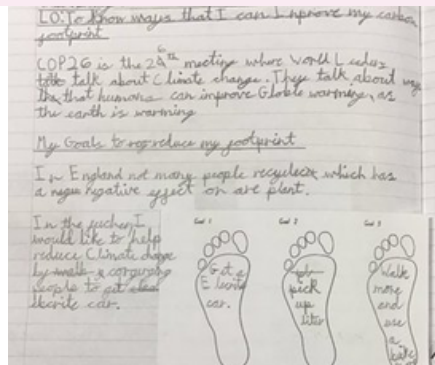 LO: To know ways that I can Inprove my carbon
footprint
COP26 is the 26th meeting where World Leders
talk about Climate change. They talk about ways
that humans can improve Globle warming, as
the earth is warming
My Goals to reduce my footprint
In England not many people recycle which has
a negative effect on are plant.
In the I
would like to help
reduce Climate change
by
people to get
car.
Goal 1
Got a
E lecrite
car.
Goal 2
pick
up
liter
Goal 3
Walk
more
and
use
a
bike